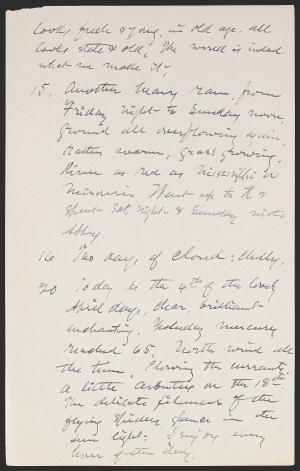 looks fresh & young, in old age, all
looks stale & old, The world is indeed
what we make it;
15, Another heavy rain, from
Friday night to Sunday noon,
Ground all overflowing again,
rather warm, grass growing,
River as red as Mississippi or
Missouri Went up to H &
spent Sat, night & Sunday with
Abby.
16 Two days of cloud: chilly.
20 Today is the 4th of the lovely
April days, clear, brilliant
enchanting. Yesterday mercury
reached 65, North wind all
the time, Plowing the currants.
A little arbutus on the 18th.
The delicate filaments of the
flying spiders glance in the
sun light. I enjoy every
hour of the day,